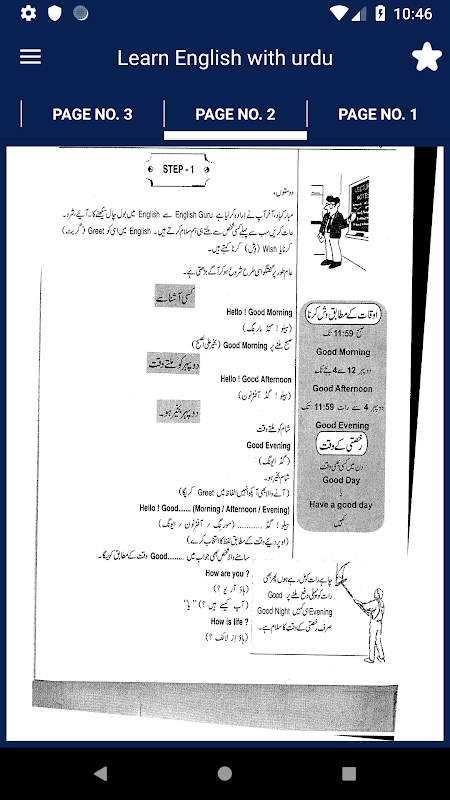 10:46
Learn English with urdu
PAGE NO. 3
PAGE NO. 2
PAGE NO. 1
STEP - 1
دوستوں،
مبارکباد، آخر آپ نے ارادہ کر لیا ہے English Guru سے English میں بول چال سیکھنے کا۔ آیئے، شروعات
کریں سب سے پہلے کسی شخص سے ملتے ہی ہم سلام کرتے ہیں۔ English میں اسی کو Greet (گریٹ)
کرنا یا Wish (وِش) کرنا کہتے ہیں۔
عام طور پر گفتگو اسی طرح شروع ہو کر آگے بڑھتی ہے۔
کسی آشنا سے
Hello ! Good Morning
(ہیلو ! گڈ مارننگ)
صبح ملنے پر Good Morning
دوپہر کو ملتے وقت
Hello ! Good Afternoon
(ہیلو ! گڈ آفٹرنون)
دوپہر بخیر ہو۔
شام کو ملتے وقت
Good Evening
(گڈ ایوننگ)
شام بخیر ہو۔
(آنے والا بھی آپکو انہیں الفاظ میں Greet کریگا)
Hello ! Good...... (Morning / Afternoon / Evening)
ہیلو ! گڈ ............ (مورننگ / آفٹرنون / ایوننگ)
(اوپر دیئے وقت کے مطابق لفظ کا انتخاب کرے)
سامنے والا شخص بھی جواب میں Good......... وقت کے مطابق کہیگا۔
How are you ?
(ہاؤ آر یو ؟)
(آپ کیسے ہیں ؟) "یا"
How is life ?
(ہاؤ اِز لائف ؟)
LECTURE NOTES
اوقات کے مطابق وش کرنا
صبح 11:59 تک
Good Morning
دوپہر 12 سے 4 بجے تک
Good Afternoon
دوپہر 4 سے رات 11:59 تک
Good Evening
رخصتی کے وقت
دن میں کسی بھی وقت
Good Day
یا
Have a good day
کہیں
چاہے رات کو مل رہے ہوں پھر بھی
رات کو پہلی دفع ملنے پر Good
Evening ہی کہیں Good Night
صرف رخصتی کے وقت کا سلام ہے۔